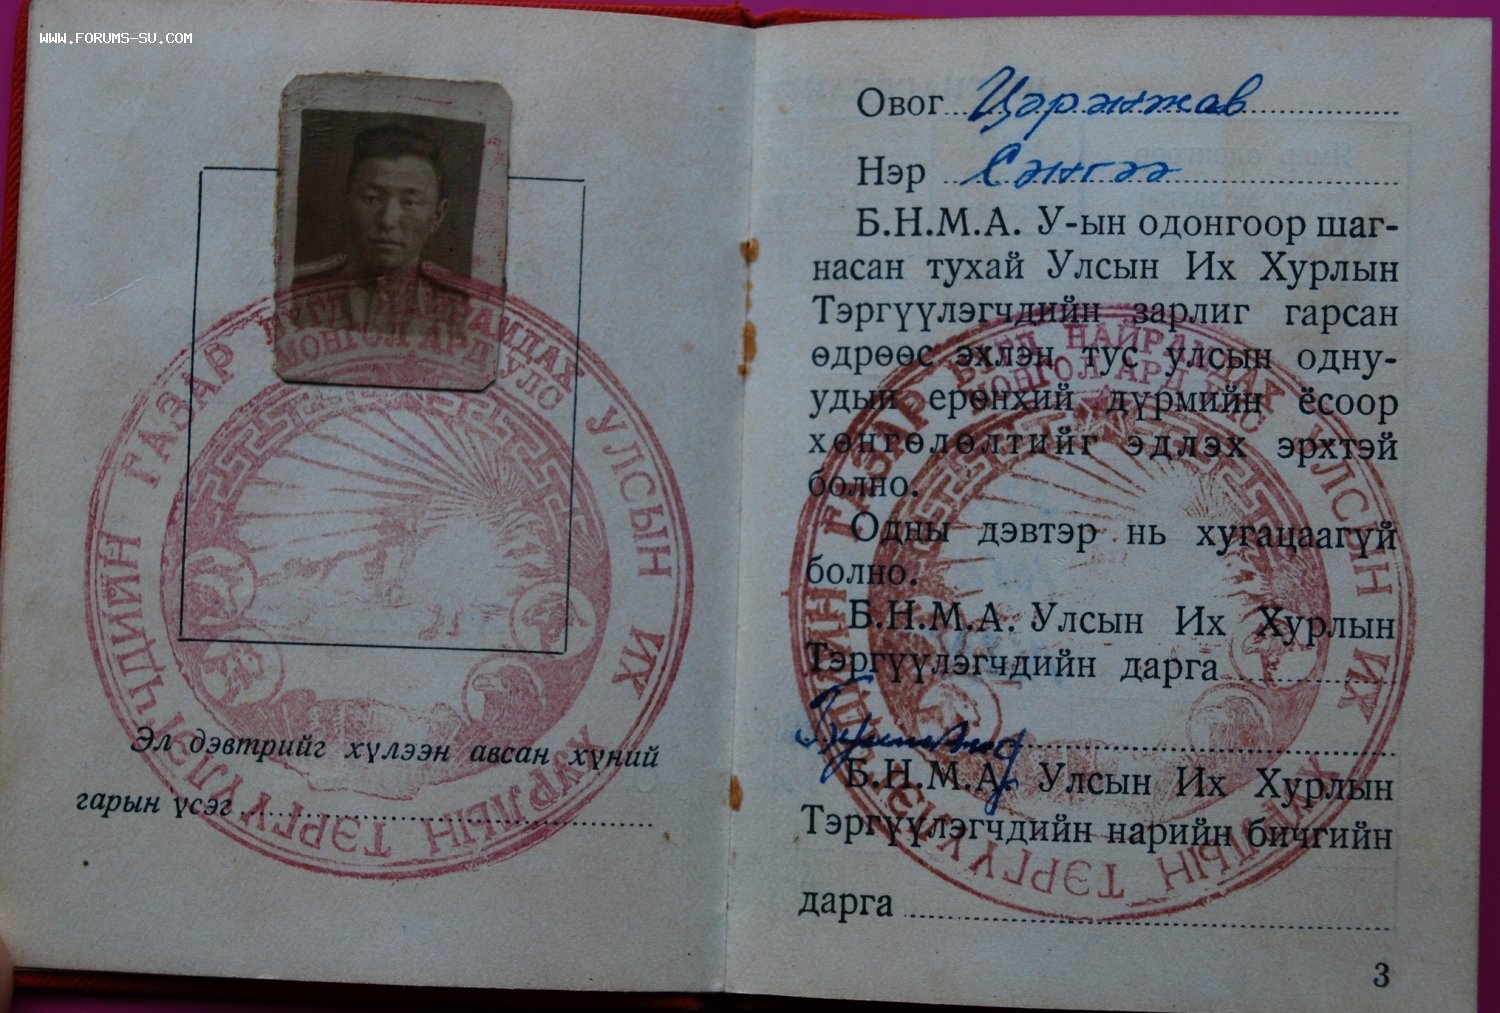 WWW.FORUMS-SU.COM
БҮГД НАЙРАМДАХ
МОНГОЛ АРД УЛС
УЛСЫН ИХ ХУРЛЫН ТЭРГҮҮЛЭГЧДИЙН ГАЗАР
Эл дэвтрийг хүлээн авсан хүний
гарын үсэг
Овог Цэрэнжав
Нэр Сэнгээ
Б.Н.М.А. У-ын одонгоор шаг-
насан тухай Улсын Их Хурлын
Тэргүүлэгчдийн зарлиг гарсан
өдрөөс эхлэн тус улсын одну-
удын ерөнхий дүрмийн ёсоор
хөнгөлөлтийг эдлэх эрхтэй
болно.
Одны дэвтэр нь хугацаагүй
болно.
Б.Н.М.А. Улсын Их Хурлын
Тэргүүлэгчдийн дарга
Б.Н.М.А. Улсын Их Хурлын
Тэргүүлэгчдийн нарийн бичгийн
дарга
БҮГД НАЙРАМДАХ
МОНГОЛ АРД УЛС
УЛСЫН ИХ ХУРЛЫН ТЭРГҮҮЛЭГЧДИЙН ГАЗАР
3